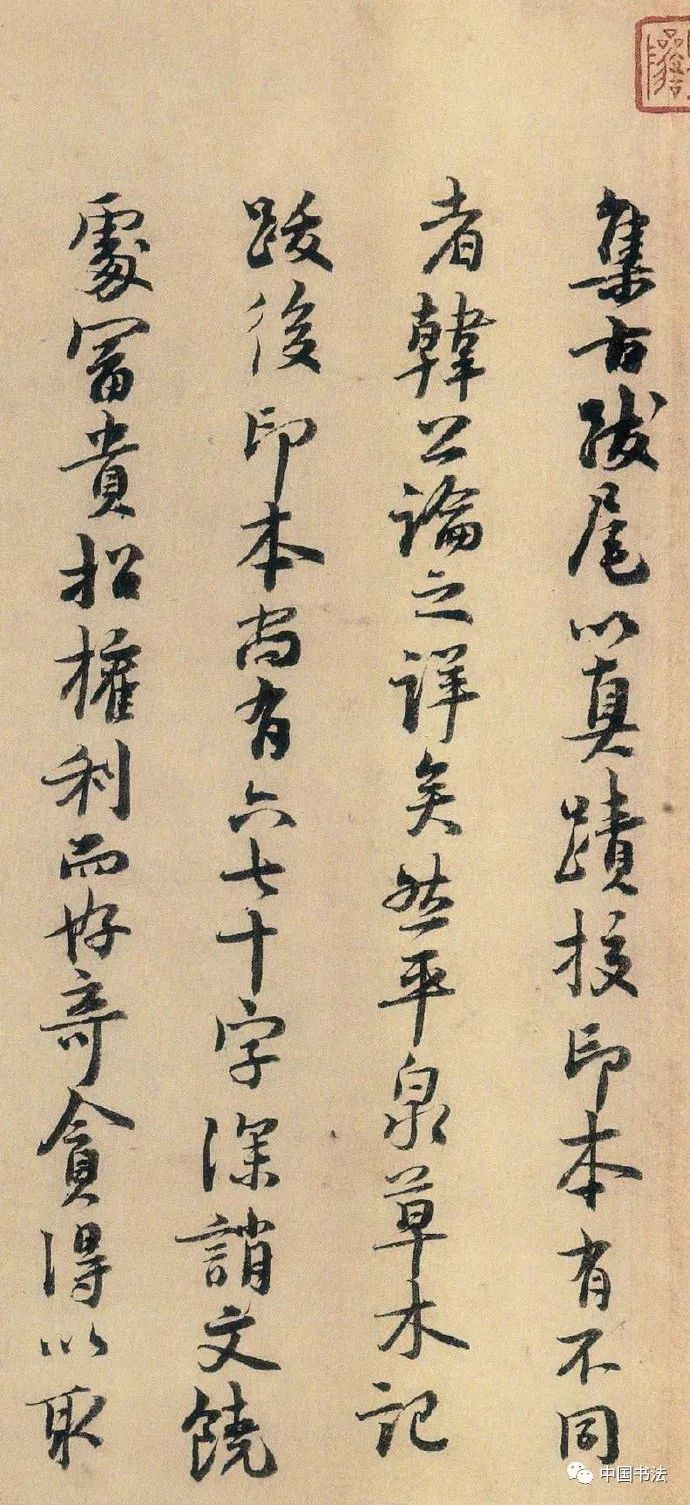 集古跋尾以真蹟校印本有不同
者韓公論之詳矣然平泉草木記
跋後印本尚有六七十字深誚文饒
處富貴招權利而好奇貪得以取
中国书法